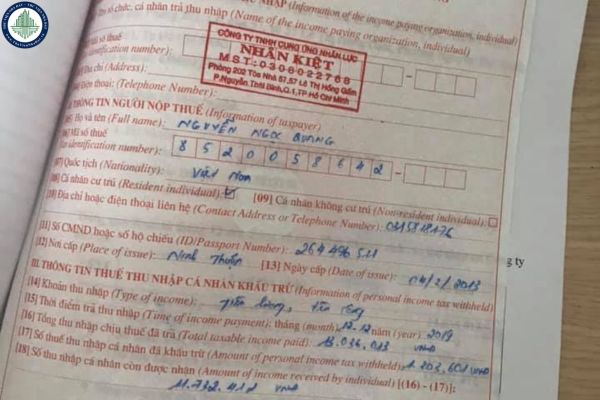 NHẬP (Information of the income paying organization, individual)
Tên tổ chức, cá nhân trả thu nhập (Name of the income paying organization, individual)
Mã số thuế
identification number):
CÔNG TY TNHH CUNG ỨNG NHÂN LỰC
NHÂN KIỆT
M.S.T:0306022768
Phòng 202 Tòa Nhà 57,57 Lê Thị Hồng Gấm
P.Nguyễn Thái Bình,Q.1,TP.Hồ Chí Minh
Địa chỉ (Address):
Điện thoại: (Telephone Number):
THÔNG TIN NGƯỜI NỘP THUẾ (Information of taxpayer)
[05] Họ và tên (Full name): NGUYỄN NGỌC QUANG
[06] Mã số thuế
Tax identification number): 8 5 2 0 0 5 8 6 4 2
[07] Quốc tịch (Nationality): Việt Nam
[08] Cá nhân cư trú (Resident individual) [09] Cá nhân không cư trú (Non-resident individual)
[10] Địa chỉ hoặc điện thoại liên hệ (Contact Address or Telephone Number):
[11] Số CMND hoặc số hộ chiếu (ID/Passport Number): 264496511
[12] Nơi cấp (Place of issue): Ninh Thuận [13] Ngày cấp (Date of issue): 04/2/2013
III. THÔNG TIN THUẾ THU NHẬP CÁ NHÂN KHẤU TRỪ (Information of personal income tax withheld)
[14] Khoản thu nhập (Type of income): tiền lương, tiền công
[15] Thời điểm trả thu nhập (Time of income payment): tháng (month) 12-12 năm (year) 2019
[16] Tổng thu nhập chịu thuế đã trả (Total taxable income paid): 13.036.013 VNĐ
[17] Số thuế thu nhập cá nhân đã khấu trừ (Amount of personal income tax withheld): 1.303.601 VNĐ
[18] Số thu nhập cá nhân còn được nhận (Amount of income received by individual) [(16) - (17)]:
11.732.412 VNĐ
g ty